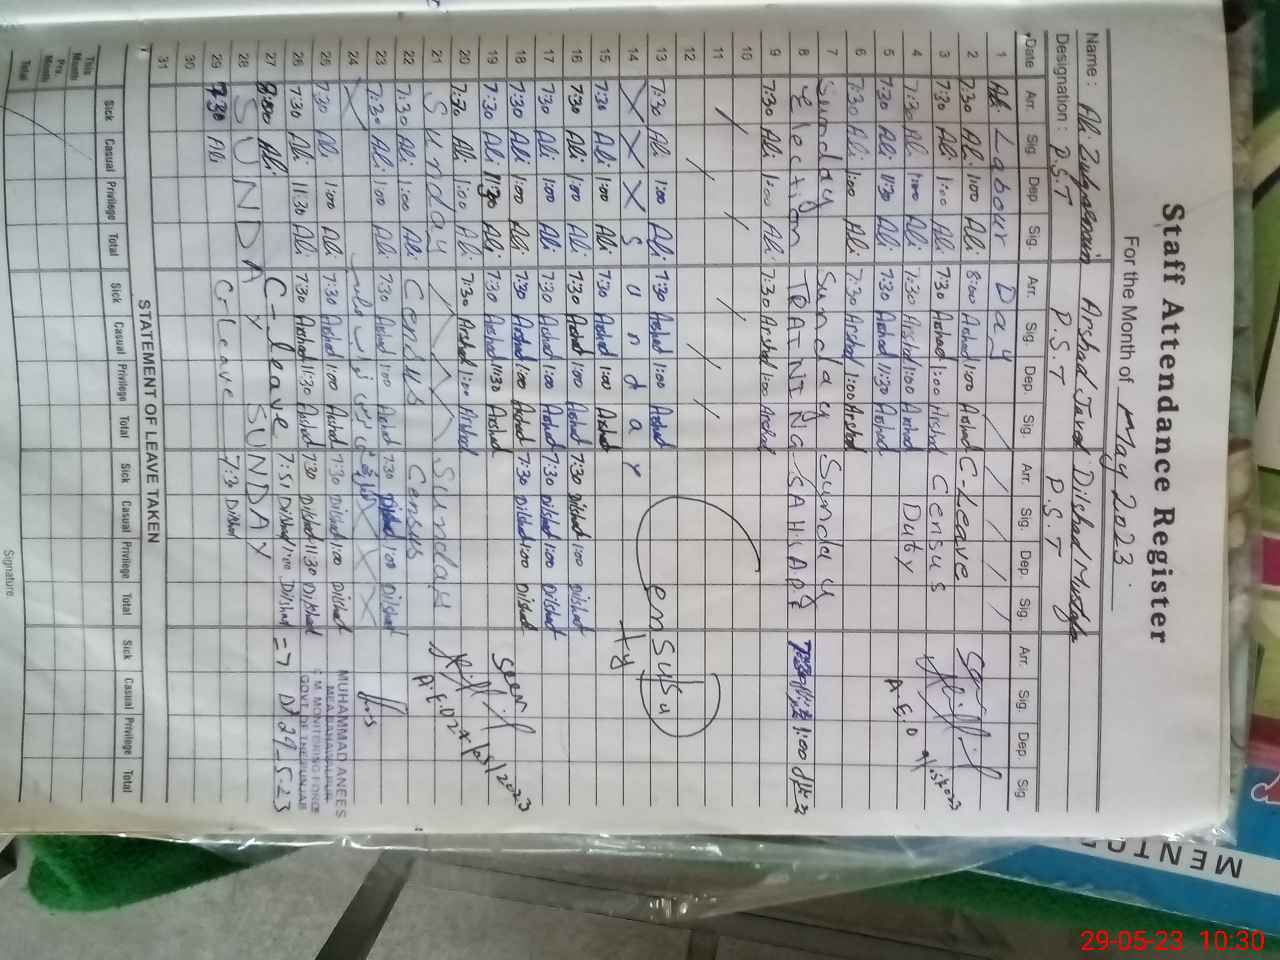 Staff Attendance Register
For the Month of May 2023
Name: Ali Zulqarnain Arshad Javed Dilshad
Designation: P.S.T P.S.T P.S.T
Date Arr. Sig. Dep. Sig. Arr. Sig. Dep. Sig. Arr. Sig. Dep. Sig. Arr. Sig. Dep. Sig.
1 Labour Day
2 7:30 Ali 1:00 Ali 8:00 Arshad 1:00 Arshad C-Leave
3 7:30 Ali 1:00 Ali 7:30 Arshad 1:00 Arshad Census
4 7:30 Ali 1:00 Ali 7:30 Arshad 1:00 Arshad Duty
5 7:30 Ali 11:30 Ali 7:30 Arshad 11:30 Arshad A.E.O
6 7:30 Ali 1:00 Ali 7:30 Arshad 1:00 Arshad
7 Sunday Sunday Sunday
8 Election TRAINING 1:00
9 7:30 Ali 1:00 Ali 7:30 Arshad 1:00 Arshad
10
11
12
13 7:30 Ali 1:00 Ali 7:30 Arshad 1:00 Arshad
14 Sunday
15 7:30 Ali 1:00 Ali 7:30 Arshad 1:00 Arshad
16 7:30 Ali 1:00 Ali 7:30 Arshad 1:00 Arshad 7:30 Dilshad 1:00 Dilshad
17 7:30 Ali 1:00 Ali 7:30 Arshad 1:00 Arshad 7:30 Dilshad 1:00 Dilshad
18 7:30 Ali 1:00 Ali 7:30 Arshad 1:00 Arshad 7:30 Dilshad 1:00 Dilshad
19 7:30 Ali 11:30 Ali 7:30 Arshad 11:30 Arshad Seen
20 7:30 Ali 1:00 Ali 7:30 Arshad 1:00 Arshad
21 Sunday Sunday
22 7:30 Ali 1:00 Ali Census Census A.E.O
23 7:30 Ali 1:00 Ali 7:30 Arshad 1:00 Arshad 7:30 Dilshad 1:00 Dilshad
24
25 7:30 Ali 1:00 Ali 7:30 Arshad 1:00 Arshad 7:30 Dilshad 1:00 Dilshad
26 7:30 Ali 11:30 Ali 7:30 Arshad 11:30 Arshad 7:30 Dilshad 11:30 Dilshad
27 8:00 Ali C-leave 7:31 Dilshad 1:00 Dilshad
28 SUNDAY SUNDAY
29 7:30 Ali C-Leave 7:3 Dilshad
30
31
MUHAMMAD ANEES
MEA BAHAWALPUR
C.M. MONITORING FORCE
GOVT. OF THE PUNJAB
29-5-23
STATEMENT OF LEAVE TAKEN
Sick Casual Privilege Total Sick Casual Privilege Total Sick Casual Privilege Total Sick Casual Privilege Total
This Month
Prs. Month
Total
Signature
MENTO
29-05-23 10:30